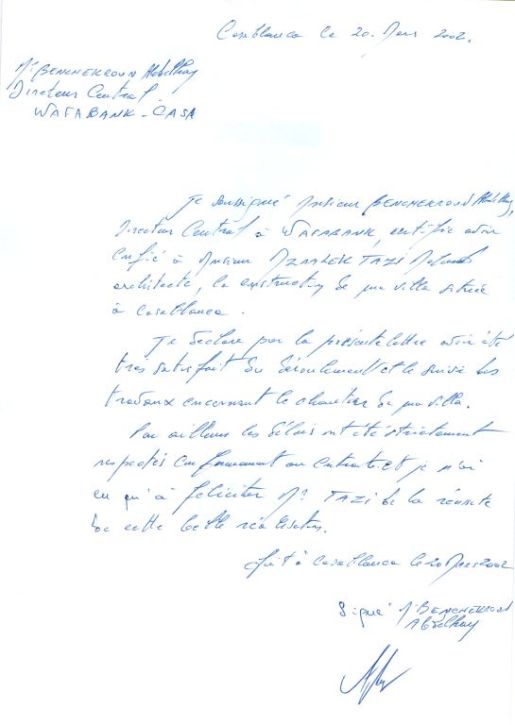 Casablanca le 20. Mars 2002.
Mr BENCHEKROUN Abdelhay
Directeur Central
WAFABANK - CASA
Je soussigné Monsieur BENCHEKROUN Abdelhay,
Directeur Central à WAFABANK, certifie avoir
confié à Monsieur TAZI
architecte, la construction de ma villa située
à Casablanca.
Je déclare par la présente lettre avoir été
très satisfait du déroulement et le suivi des
travaux concernant le chantier de ma villa.
Par ailleurs les délais ont été strictement
respectés conformément au contrat et je n'ai
eu qu'à féliciter Mr TAZI de la réussite
de cette belle réalisation.
fait à Casablanca le 20 Mars 2002
Signé Mr BENCHEKROUN
Abdelhay